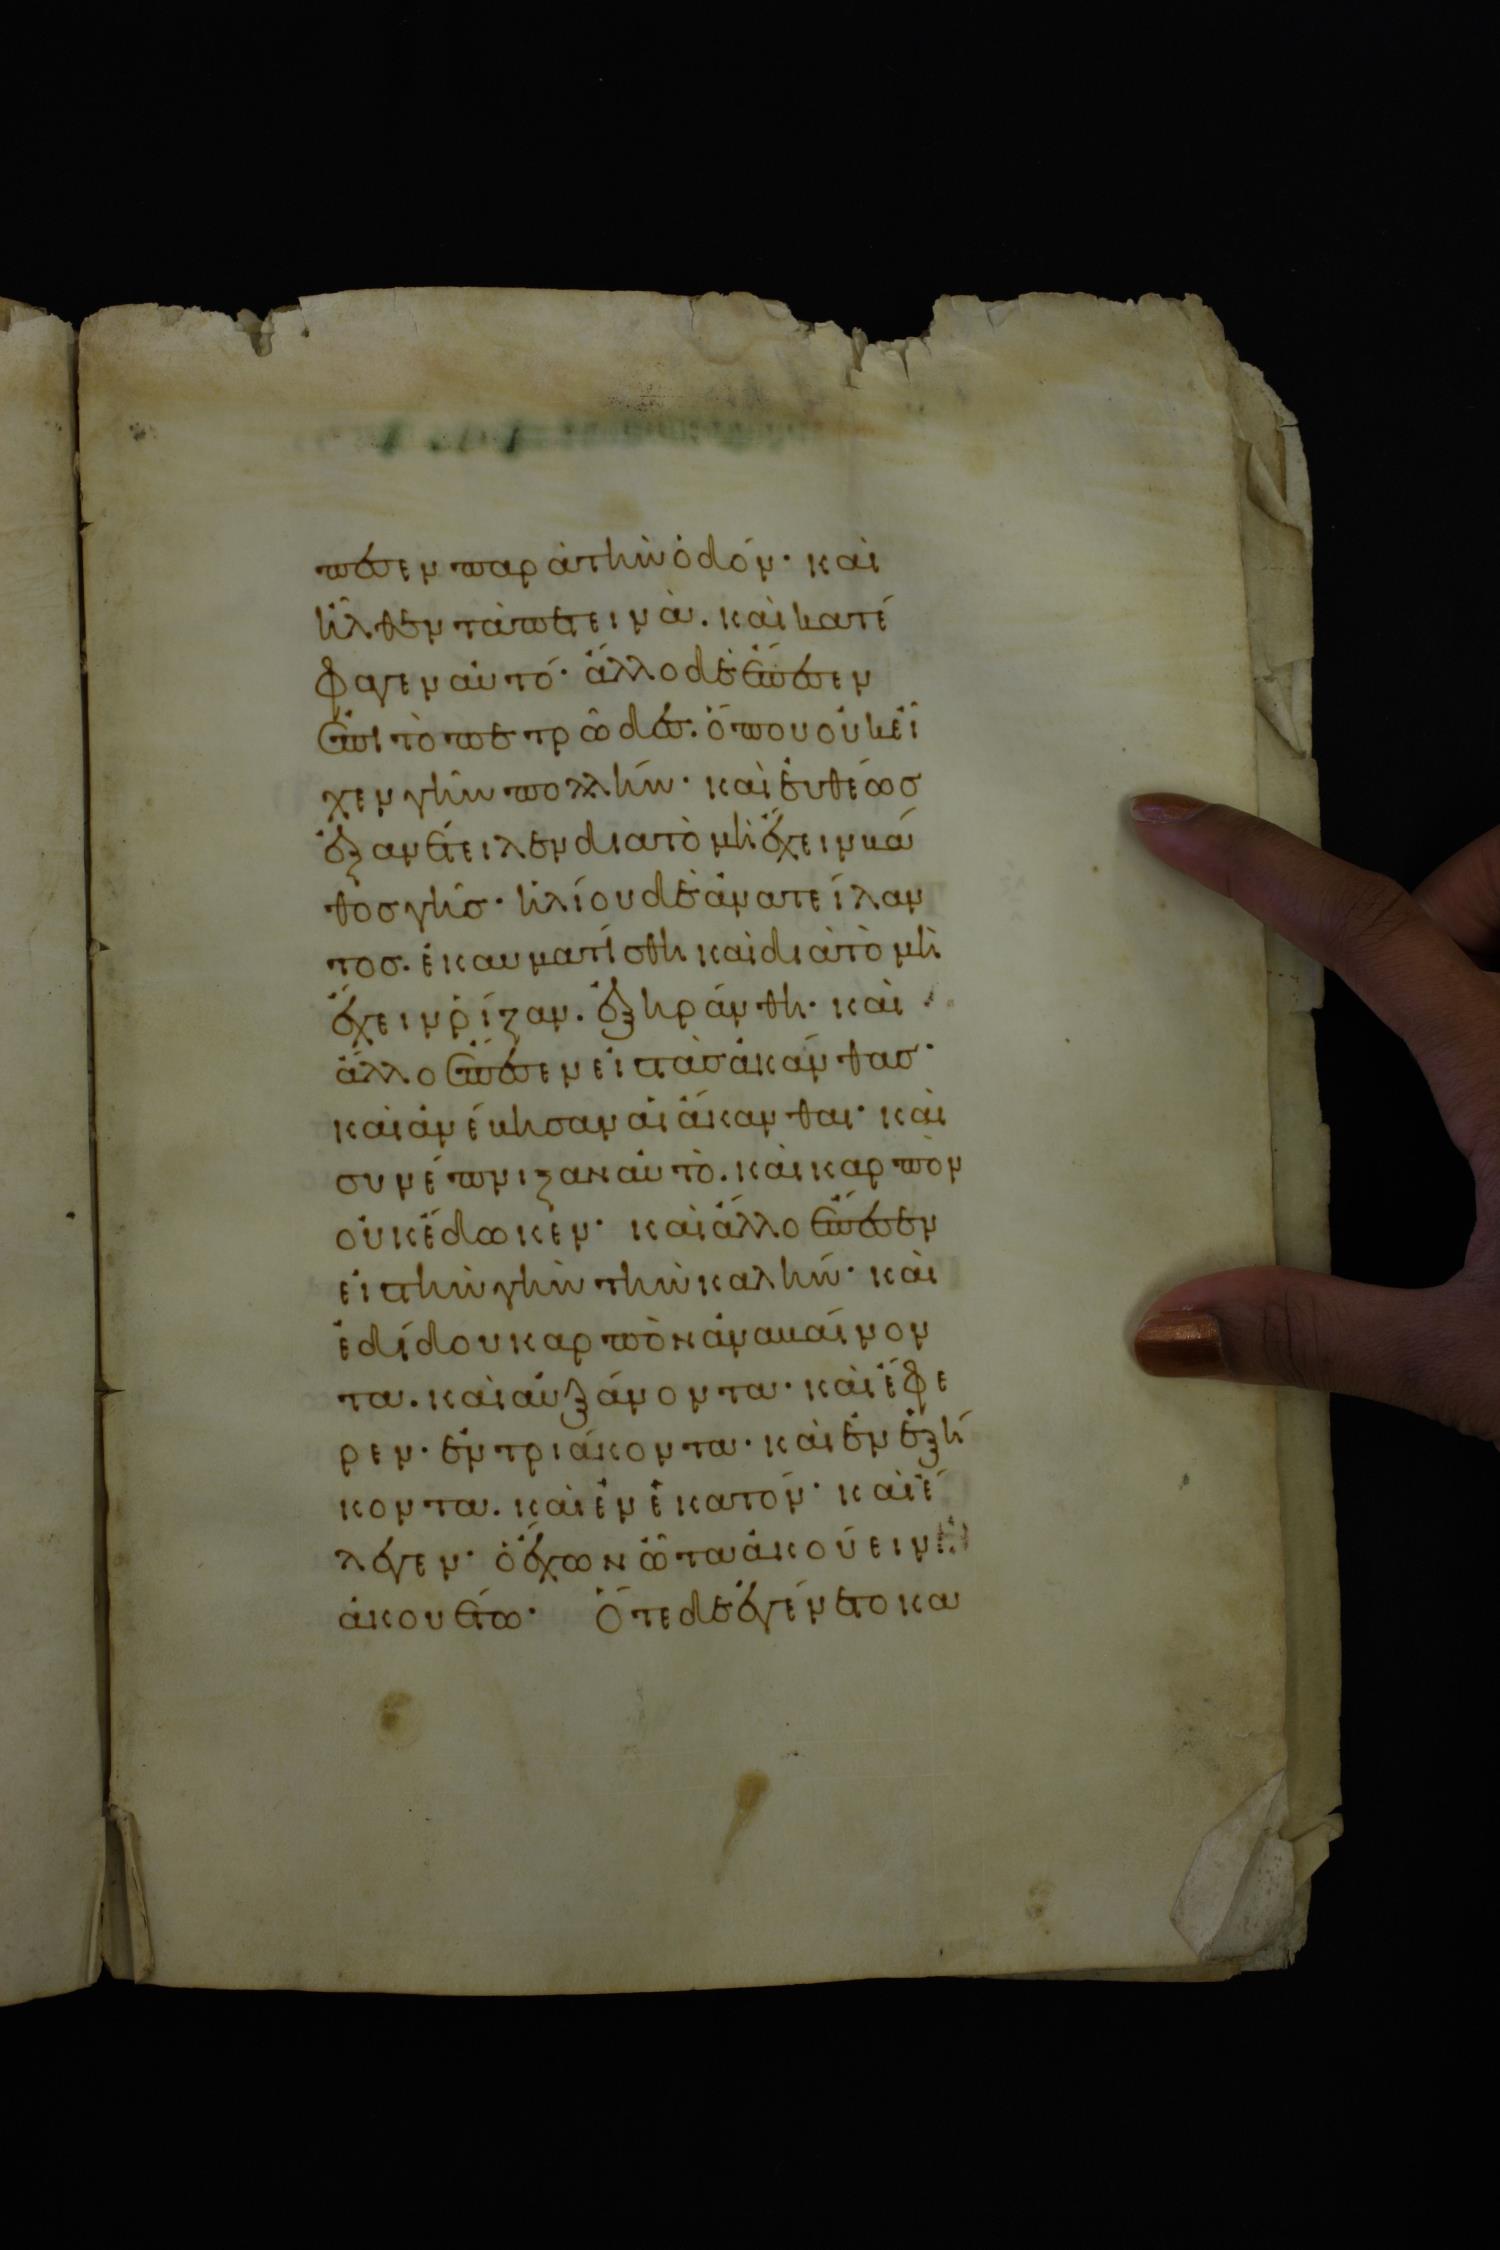 πέσεν παρὰ τὴν ὁδόν· καὶ
ἦλθεν τὰ πετεινὰ. καὶ κατέ
φαγεν αὐτό· ἄλλο δὲ ἔπεσεν
ἐπὶ τὸ πετρῶδες. ὅπου οὐκ εἶ
χεν γῆν πολλήν· καὶ εὐθέως
ἐξανέτειλεν διὰ τὸ μὴ ἔχειν βά
θος γῆς· ἡλίου δὲ ἀνατείλαν
τος. ἐκαυματίσθη καὶ διὰ τὸ μὴ
ἔχειν ῥίζαν. ἐξηράνθη· καὶ
ἄλλο ἔπεσεν εἰς τὰς ἀκάνθας·
καὶ ἀνέβησαν αἱ ἄκανθαι· καὶ
συνέπνιξαν αὐτὸ. καὶ καρπὸν
οὐκ ἔδωκεν· καὶ ἄλλο ἔπεσεν
εἰς τὴν γῆν τὴν καλήν· καὶ
ἐδίδου καρπὸν ἀναβαίνον
τα. καὶ αὐξάνοντα· καὶ ἔφε
ρεν· ἐν τριάκοντα· καὶ ἐν ἑξή
κοντα. καὶ ἐν ἑκατόν· καὶ ἔ
λεγεν· ὁ ἔχων ὦτα ἀκούειν
ἀκουέτω· Ὅτε δὲ ἐγένετο κα